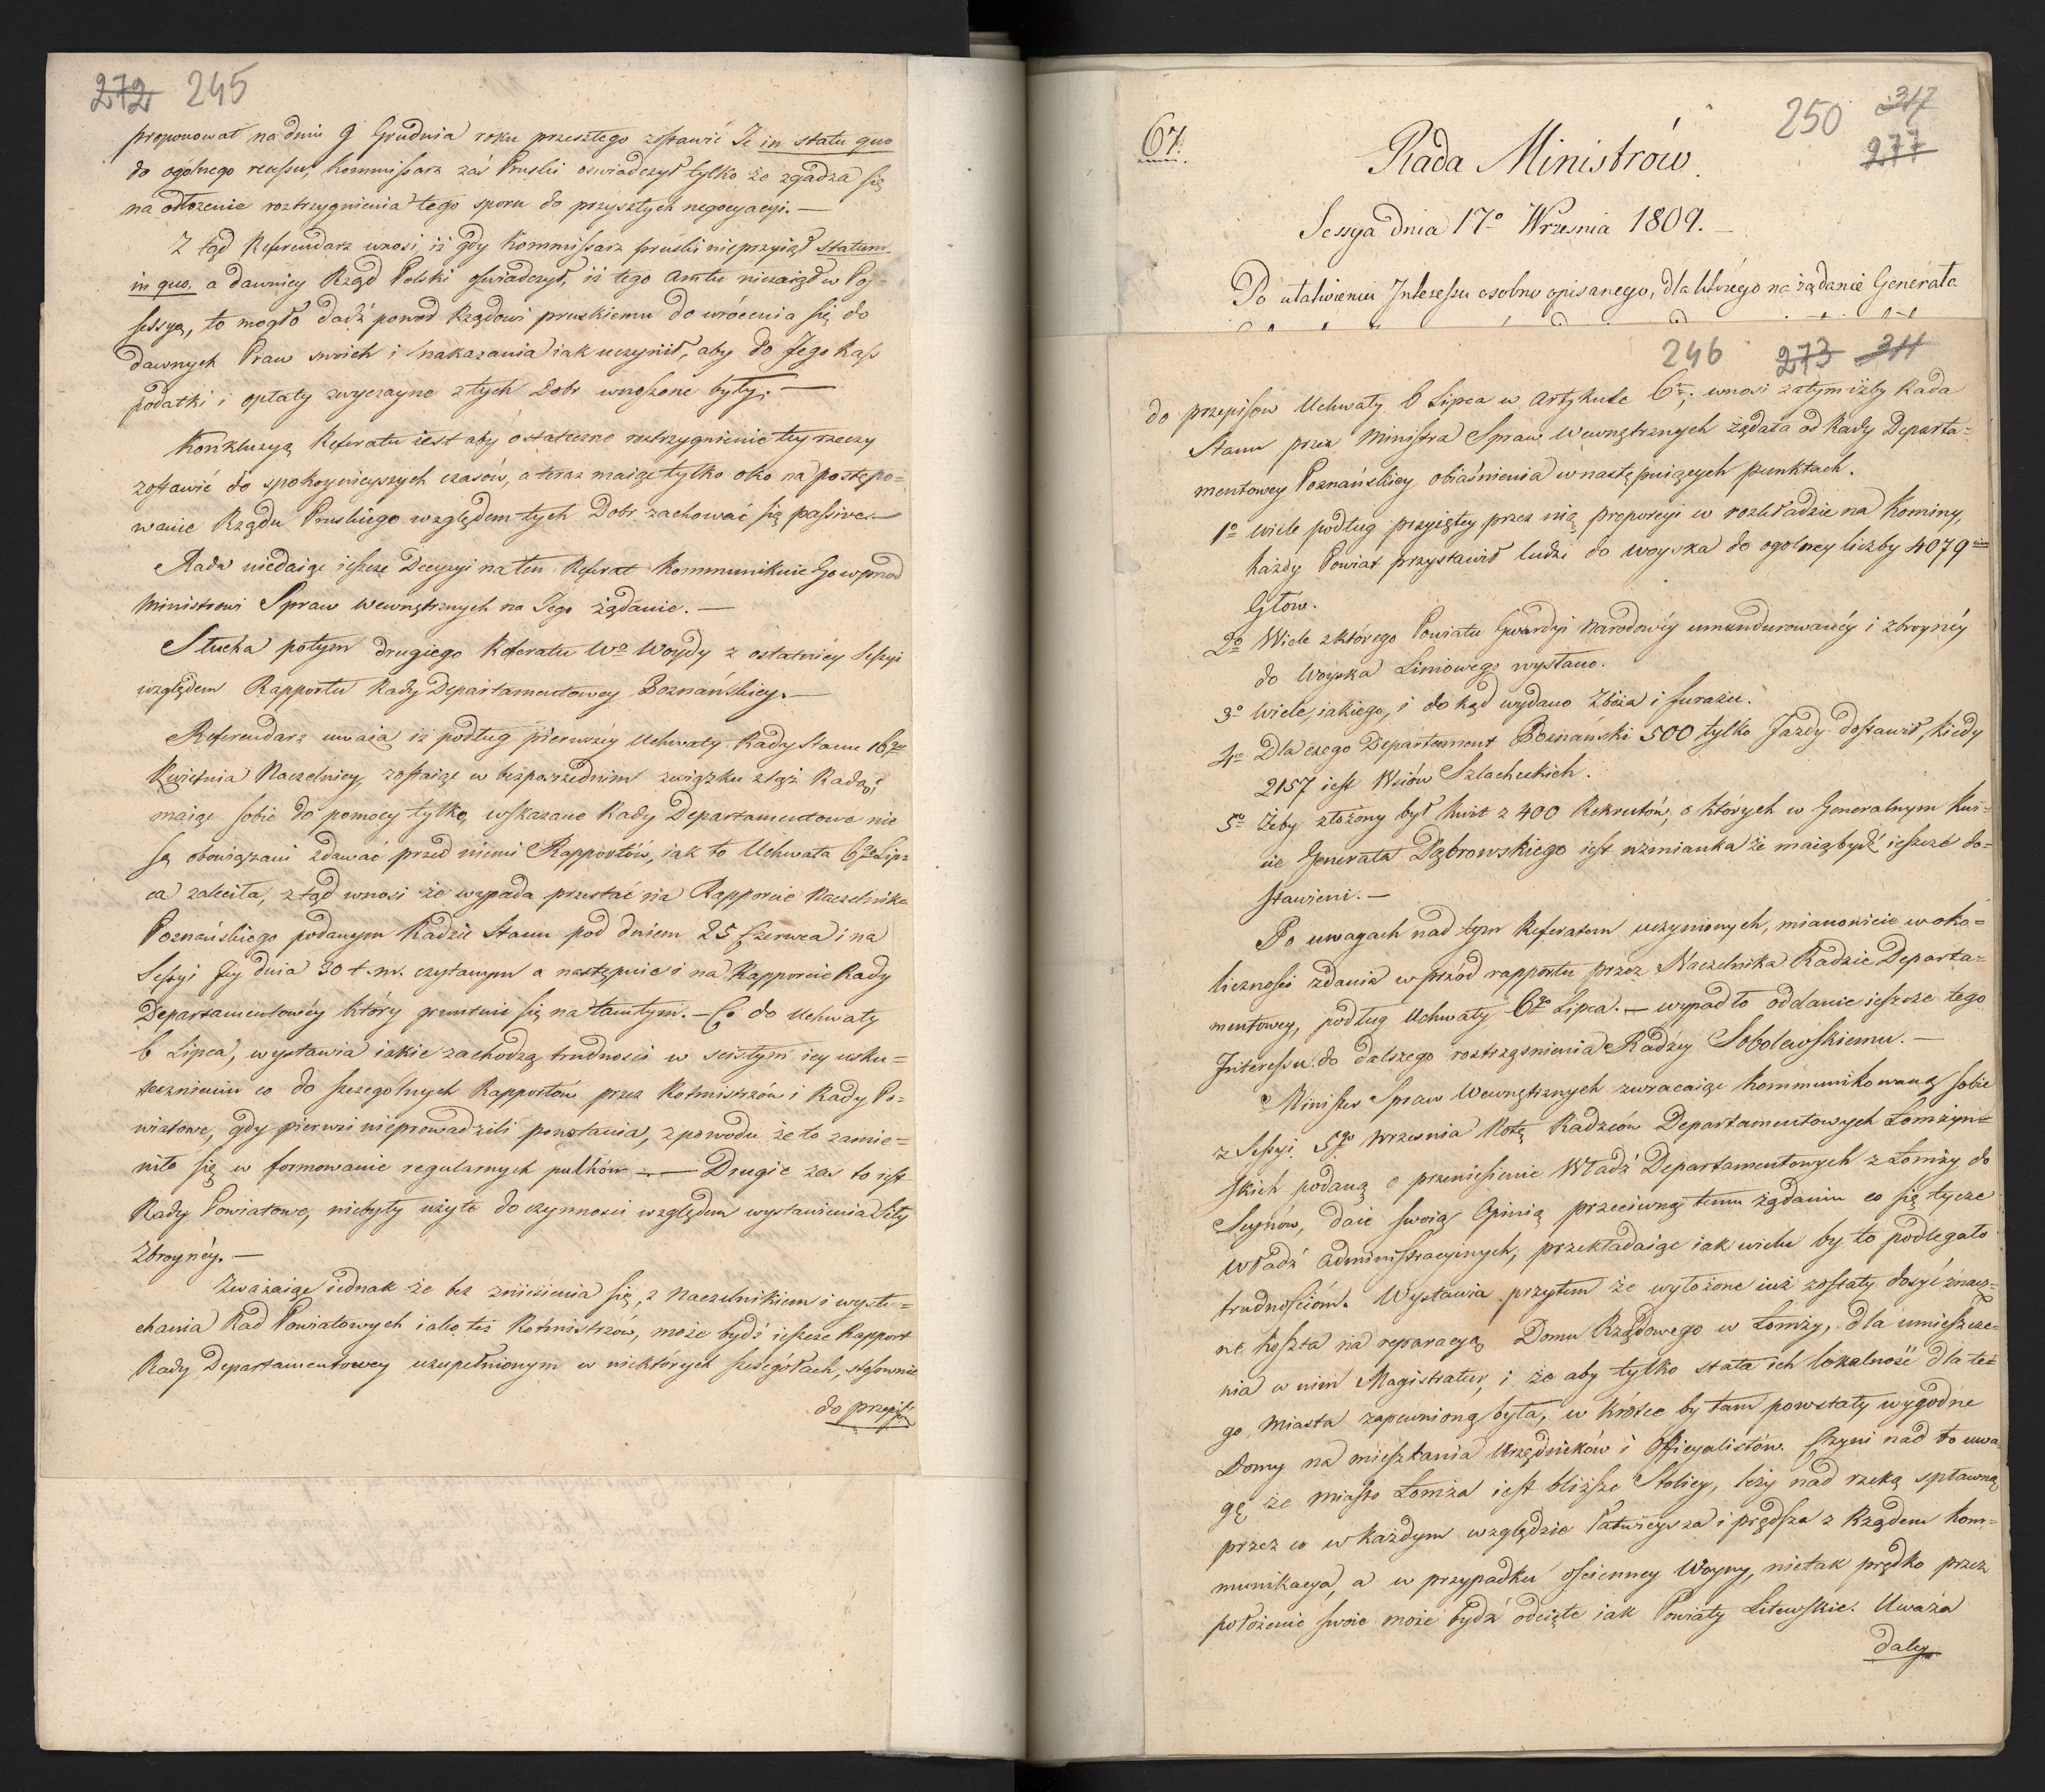 272 245
proponował na dniu 9 Grudnia roku przeszłego zostawić Je in statu quo
do ogólnego recessu, Kommissarz zaś Pruski oświadczył tylko że zgadza się
na odłożenie roztrzygnienia tego sporu do przyszłych negocyacyi. —
Z tąd Referendarz wnosi iż gdy Kommissarz pruski nieprzyiął statum
in quo, a dawniey Rząd Polski oświadczył, iż tego Amtu niezaiął w Pos-
sessyą, to mogło dadź powod Rządowi pruskiemu do wrócenia się do
dawnych Praw swoich i nakazania iak uczynił, aby do Jego Kass
podatki i opłaty zwyczayne z tych Dobr wnoszone były. —
Konkluzyą Referatu iest aby ostateczne roztrzygnienie tey rzeczy
zostawić do spokoynieyszych czasów, a teraz maiąc tylko oko na postępo=
wanie Rządu Pruskiego względem tych Dobr zachować się passive. —
Rada niedaiąc ieszcze Decyzyi na ten Referat kommunikuie Go wprzod
Ministrowi Spraw Wewnętrznych na Jego żądanie. —
Słucha potym drugiego Referatu Wo Woydy z ostatniey Sessyi
względem Rapportu Rady Departamentowey Poznańskiey. —
Referendarz uważa iż podług pierwszéy Uchwały Rady Stanu 16go
Kwietnia Naczelnicy, zostaiąc w bezpośrzednim związku z tąż Radą,
maiąc sobie do pomocy tylko, wskazane Rady Departamentowe nie
są obowiązani zdawać przed niemi Rapportów, iak to Uchwała 6go Lip=
ca zaleciła, ztąd wnosi że wypada przestać na Rapporcie Naczelnika
Poznańskiego podanym Radzie Stanu pod dniem 25 Czerwca i na
Sessyi Jey dnia 30 t. m. czytanym a następnie i na Rapporcie Rady
Departamentowéy który gruntuie się na tamtym. — Co do Uchwały
6 Lipca, wystawia iakie zachodzą trudności w scisłym icy usku=
tecznieniu co do szczegolnych Rapportów przez Rotmistrzów i Rady Po=
wiatowe, gdy pierwsi nieprowadzili powstania, z powodu że to zamie=
niło się w formowanie regularnych pułków — . — Drugie zaś to iest
Rady Powiatowe, niebyły użyte do czynności względem wystawienia Siły
Zbroynéy. —
Zważaiąc iednak że bez zniesienia się, z Naczelnikiem i wysłu=
chania Rad Powiatowych iako też Rotmistrzów, może bydź ieszcze Rapport
Rady Departamentowey uzupełnionym w niektórych szczegółach, stosownie
do przepisów
67.
250 317
277
Rada Ministrów.
Sessya dnia 17o Września 1809. —
Po ułatwieniu Interessu osobno opisanego, dla którego na żądanie Generała
246 273 311
do przepisow Uchwały 6 Lipca w Artykule 6m; wnosi zatym iżby Rada
Stanu przez Ministra Spraw Wewnętrznych żądała od Rady Departa=
mentowey Poznańskiey obiaśnienia w następuiących punktach.
1o Wiele podług przyiętey przez nią proporcyi w rozkładzie na Kominy,
każdy Powiat przystawił ludzi do woyska do ogolney liczby 4079
Głów.
2o Wiele z którego Powiatu Gwardyi Narodowéy umundurowanéy i zbroynéy
do Woyska Liniowego wysłano.
3o Wiele, iakiego, i do kąd wydano Zboża i furażu.
4o Dla czego Departament Poznański 500 tylko Jazdy dostawił, kiedy
2157 iest Wsiów Szlacheckich.
5o Żeby złożony był kwit z 400 Rekrutów, o których w Generalnym Kwi=
cie Generała Dąbrowskiego iest wzmianka że maią bydź ieszcze do=
stawieni. —
Po uwagach nad tym Referatem uczynionych, mianowicie w oko=
liczności zdania wprzod rapportu przez Naczelnika Radzie Departa=
mentowey, podług Uchwały 6go Lipca. — wypadło oddanie ieszcze tego
Interessu do dalszego roztrząśnienia Radzcy Sobolewskiemu. —
Minister Spraw Wewnętrznych zwracaiąc kommunikowaną sobie
z Sessyi 5go Września Notę Radzców Departamentowych Łomżyń=
skich podaną o przeniesienie Władz Departamentowych z Łomży do
Seynów, daie swoią Opinią przeciwną temu żądaniu co się tycze
Władz Administracyinych, przekładaiąc iak wielu by to podlegało
trudnościom. Wystawia przytem że wyłożone iuż zostały dosyć znacz=
ne koszta na reparacyą Domu Rządowego w Łomży, dla umieszcze=
nia w nim Magistratur, i że aby tylko stała ich lokalność dla te=
go Miasta zapewnioną była, w krótce by tam powstały wygodne
Domy na mieszkania Urzędników i Officyalistów. Czyni nad to uwa=
gę że miasto Łomża iest bliższe Stolicy, leży nad rzeką spławną
przez co w każdym względzie łatwieysza i prędsza z Rządem kom=
munikacya, a w przypadku ościenney Woyny, nietak prędko przez
położenie swoie może bydź odcięte iak Powiaty Litewskie. Uważa
daley